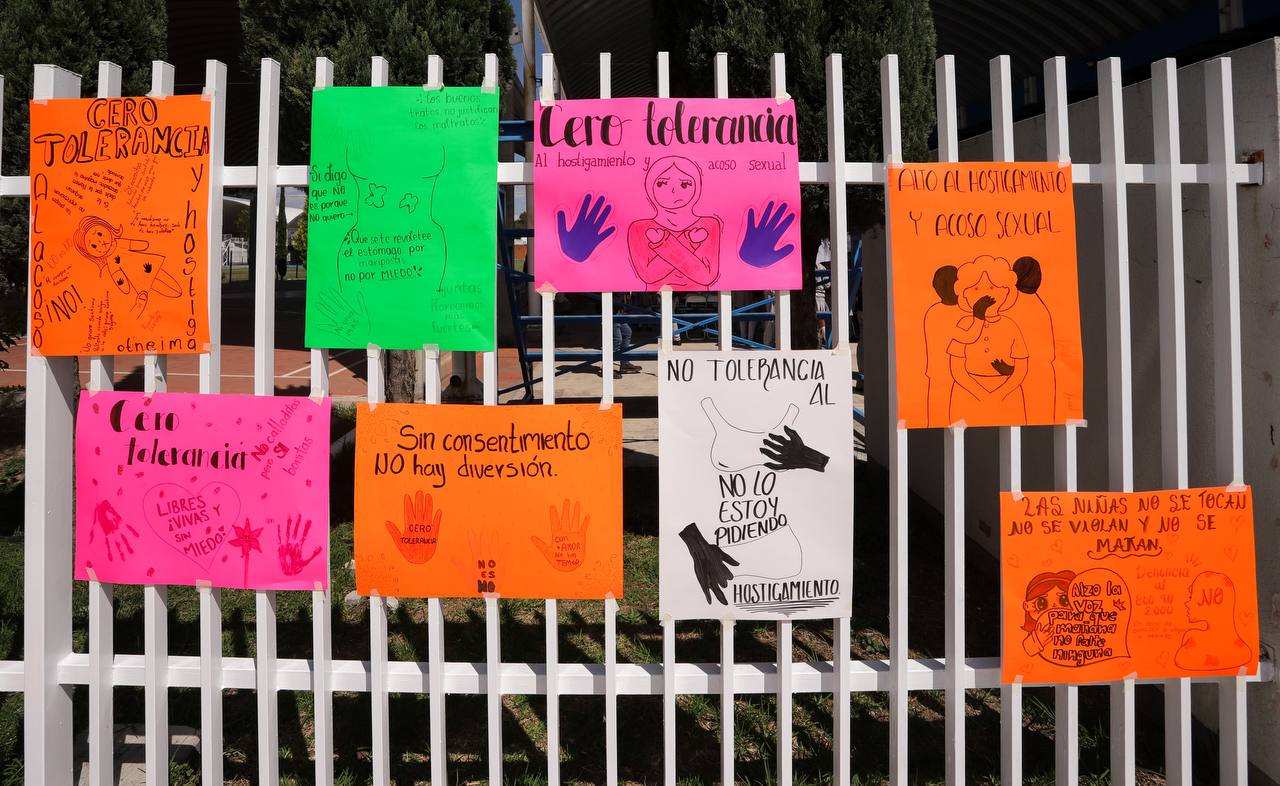 CERO
TOLERANCIA
Al acoso
y hostiga
otneima
¡NO!
¡Los buenos
tratos, no justifican
los maltratos!
Si digo
que NO
es porque
NO
quiero
¡Que se te revolotee
el estómago por
mariposas
no por MIEDO!
Juntas
florecemos
más
fuertes
Cero tolerancia
Al hostigamiento y acoso sexual
ALTO AL HOSTIGAMIENTO
Y ACOSO SEXUAL
Cero
tolerancia
No calladitas
pero SI
bonitas
LIBRES
¡VIVAS Y
SIN
MIEDO!
Sin consentimiento
NO hay diversión.
CERO
TOLERANCIA
NO
ES
NO
Con
AMOR
No hay
TEMOR
NO TOLERANCIA
AL
NO LO
ESTOY
PIDIENDO
HOSTIGAMIENTO
LAS NIÑAS NO SE TOCAN
NO SE VIOLAN Y NO SE
MATAN
Alzo la
voz
para que
mañana
no falte
ninguna
Denuncia
al
NO